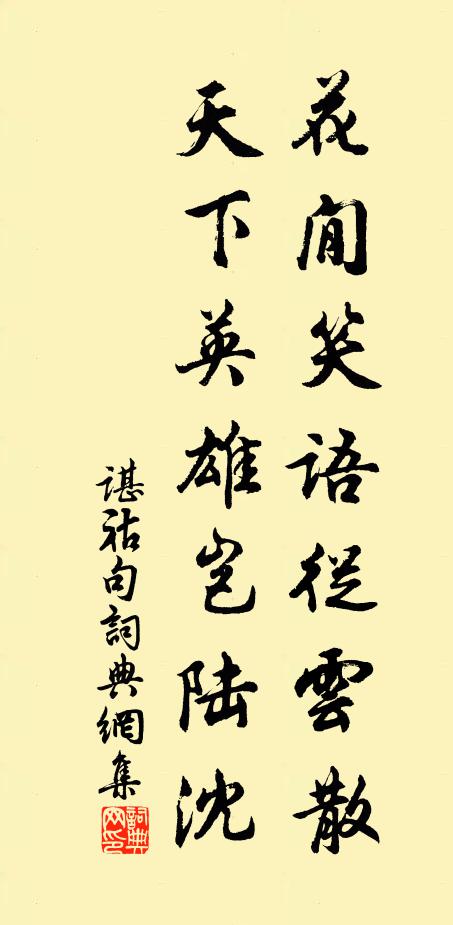 花間笑語從雲散
天下英雄豈陸沈
諶祜句詞典網集
詞典網印